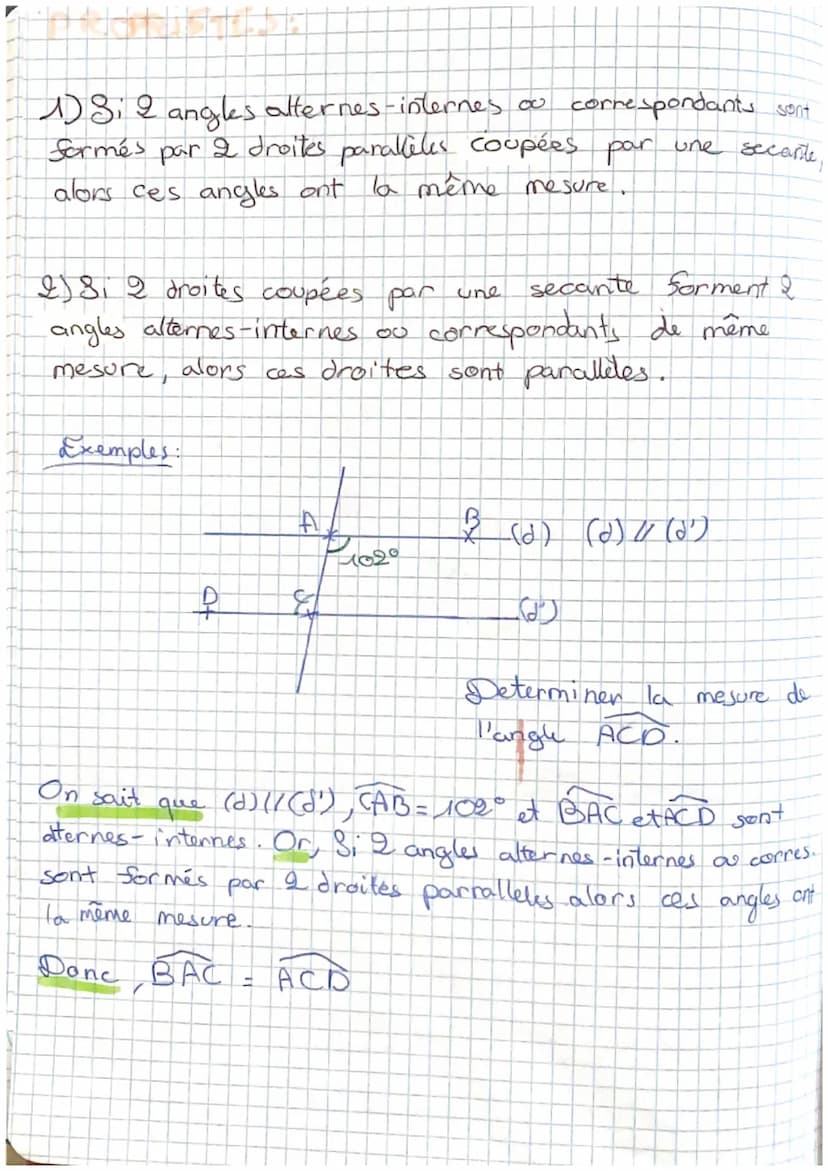 PROPRIÉTÉS:
1) Si 2 angles alternes-internes ou correspondants sont
formés par 2 droites parallèles coupées par une secante,
alors ces angles ont la même mesure.
2) Si 2 droites coupées par une secante forment 2
angles alternes-internes ou correspondants de même
mesure, alors ces droites sont parallèles.
Exemples:
A B (d) (d) // (d')
102°
D C (d')
Determiner la mesure de
l'angle ACD.
On sait que (d)//(d'), CAB = 102° et BAC et ACD sont
alternes-internes. Or, Si 2 angles alternes-internes ou corres.
sont formés par 2 droites parralleles alors ces angles ont
la même mesure.
Donc, BAC = ACD